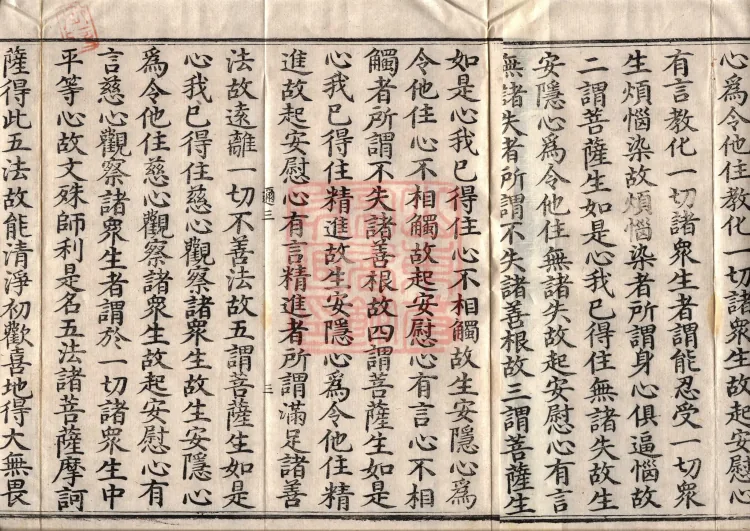 心為令他住教化一切諸衆生故起安慰心
有言教化一切諸衆生者謂能忍受一切衆
生煩惱染故煩惱染者所謂身心俱逼惱故
二謂菩薩生如是心我已得住無諸失故生
安隱心為令他住無諸失故起安慰心有言
無諸失者所謂不失諸善根故三謂菩薩生
如是心我已得住心不相觸故生安隱心為
令他住心不相觸故起安慰心有言心不相
觸者所謂不失諸善根故四謂菩薩生如是
心我已得住精進故生安隱心為令他住精
進故起安慰心有言精進者所謂滿足諸善
通三
三
法故遠離一切不善法故五謂菩薩生如是
心我已得住慈心觀察諸衆生故生安隱心
為令他住慈心觀察諸衆生故起安慰心有
言慈心觀察諸衆生者謂於一切諸衆生中
平等心故文殊師利是名五法諸菩薩摩訶
薩得此五法故能清淨初歡喜地得大無畏